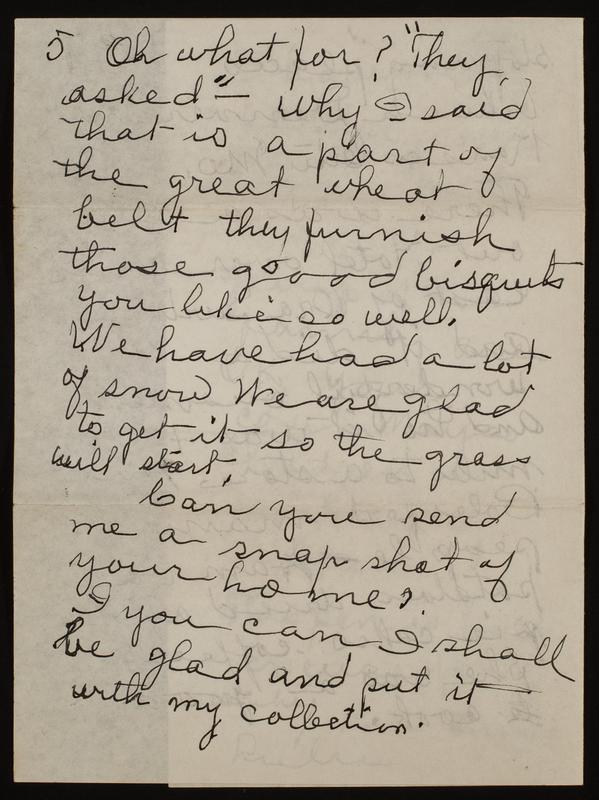 5 Oh what for? "They
asked" — Why I said
that is a part of
the great wheat
belt they furnish
those good bisquits
you like so well.
We have had a lot
of snow We are glad
to get it so the grass
will start.
Can you send
me a snap shot of
your home?
I you can I shall
be glad and put it
with my collection.